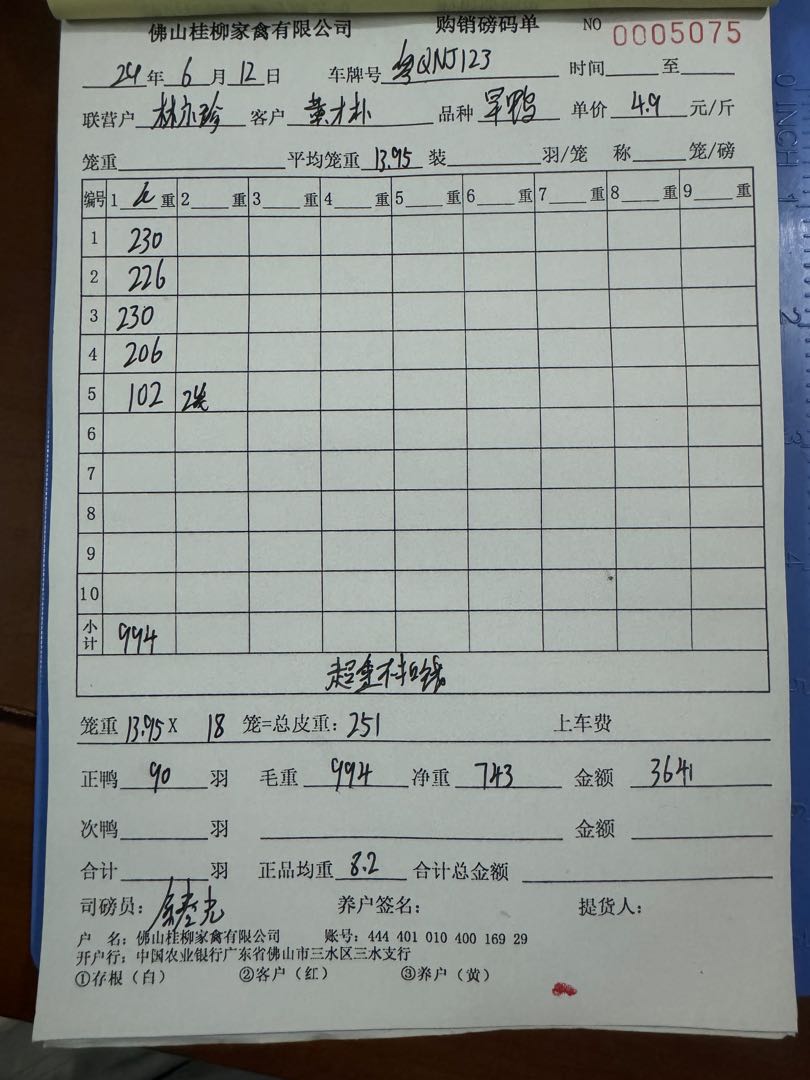 佛山桂柳家禽有限公司 购销磅码单 NO 0005075
24年6月12日 车牌号 粤QNJ123 时间 至
联营户 客户 黄才朴 品种 旱鸭 单价 4.9 元/斤
笼重 平均笼重 13.95 装 羽/笼 称 笼/磅
编号 1 重 2 重 3 重 4 重 5 重 6 重 7 重 8 重 9 重
1 230
2 226
3 230
4 206
5 102 2笼
6
7
8
9
10
小计 994
超重扣钱
笼重 13.95 X 18 笼=总皮重: 251 上车费
正鸭 90 羽 毛重 994 净重 743 金额 3641
次鸭 羽 金额
合计 羽 正品均重 8.2 合计总金额
司磅员: 养户签名: 提货人:
户 名: 佛山桂柳家禽有限公司 账号: 444 401 010 400 169 29
开户行: 中国农业银行广东省佛山市三水区三水支行
①存根(白) ②客户(红) ③养户(黄)
INCH 1 2 3 4 5